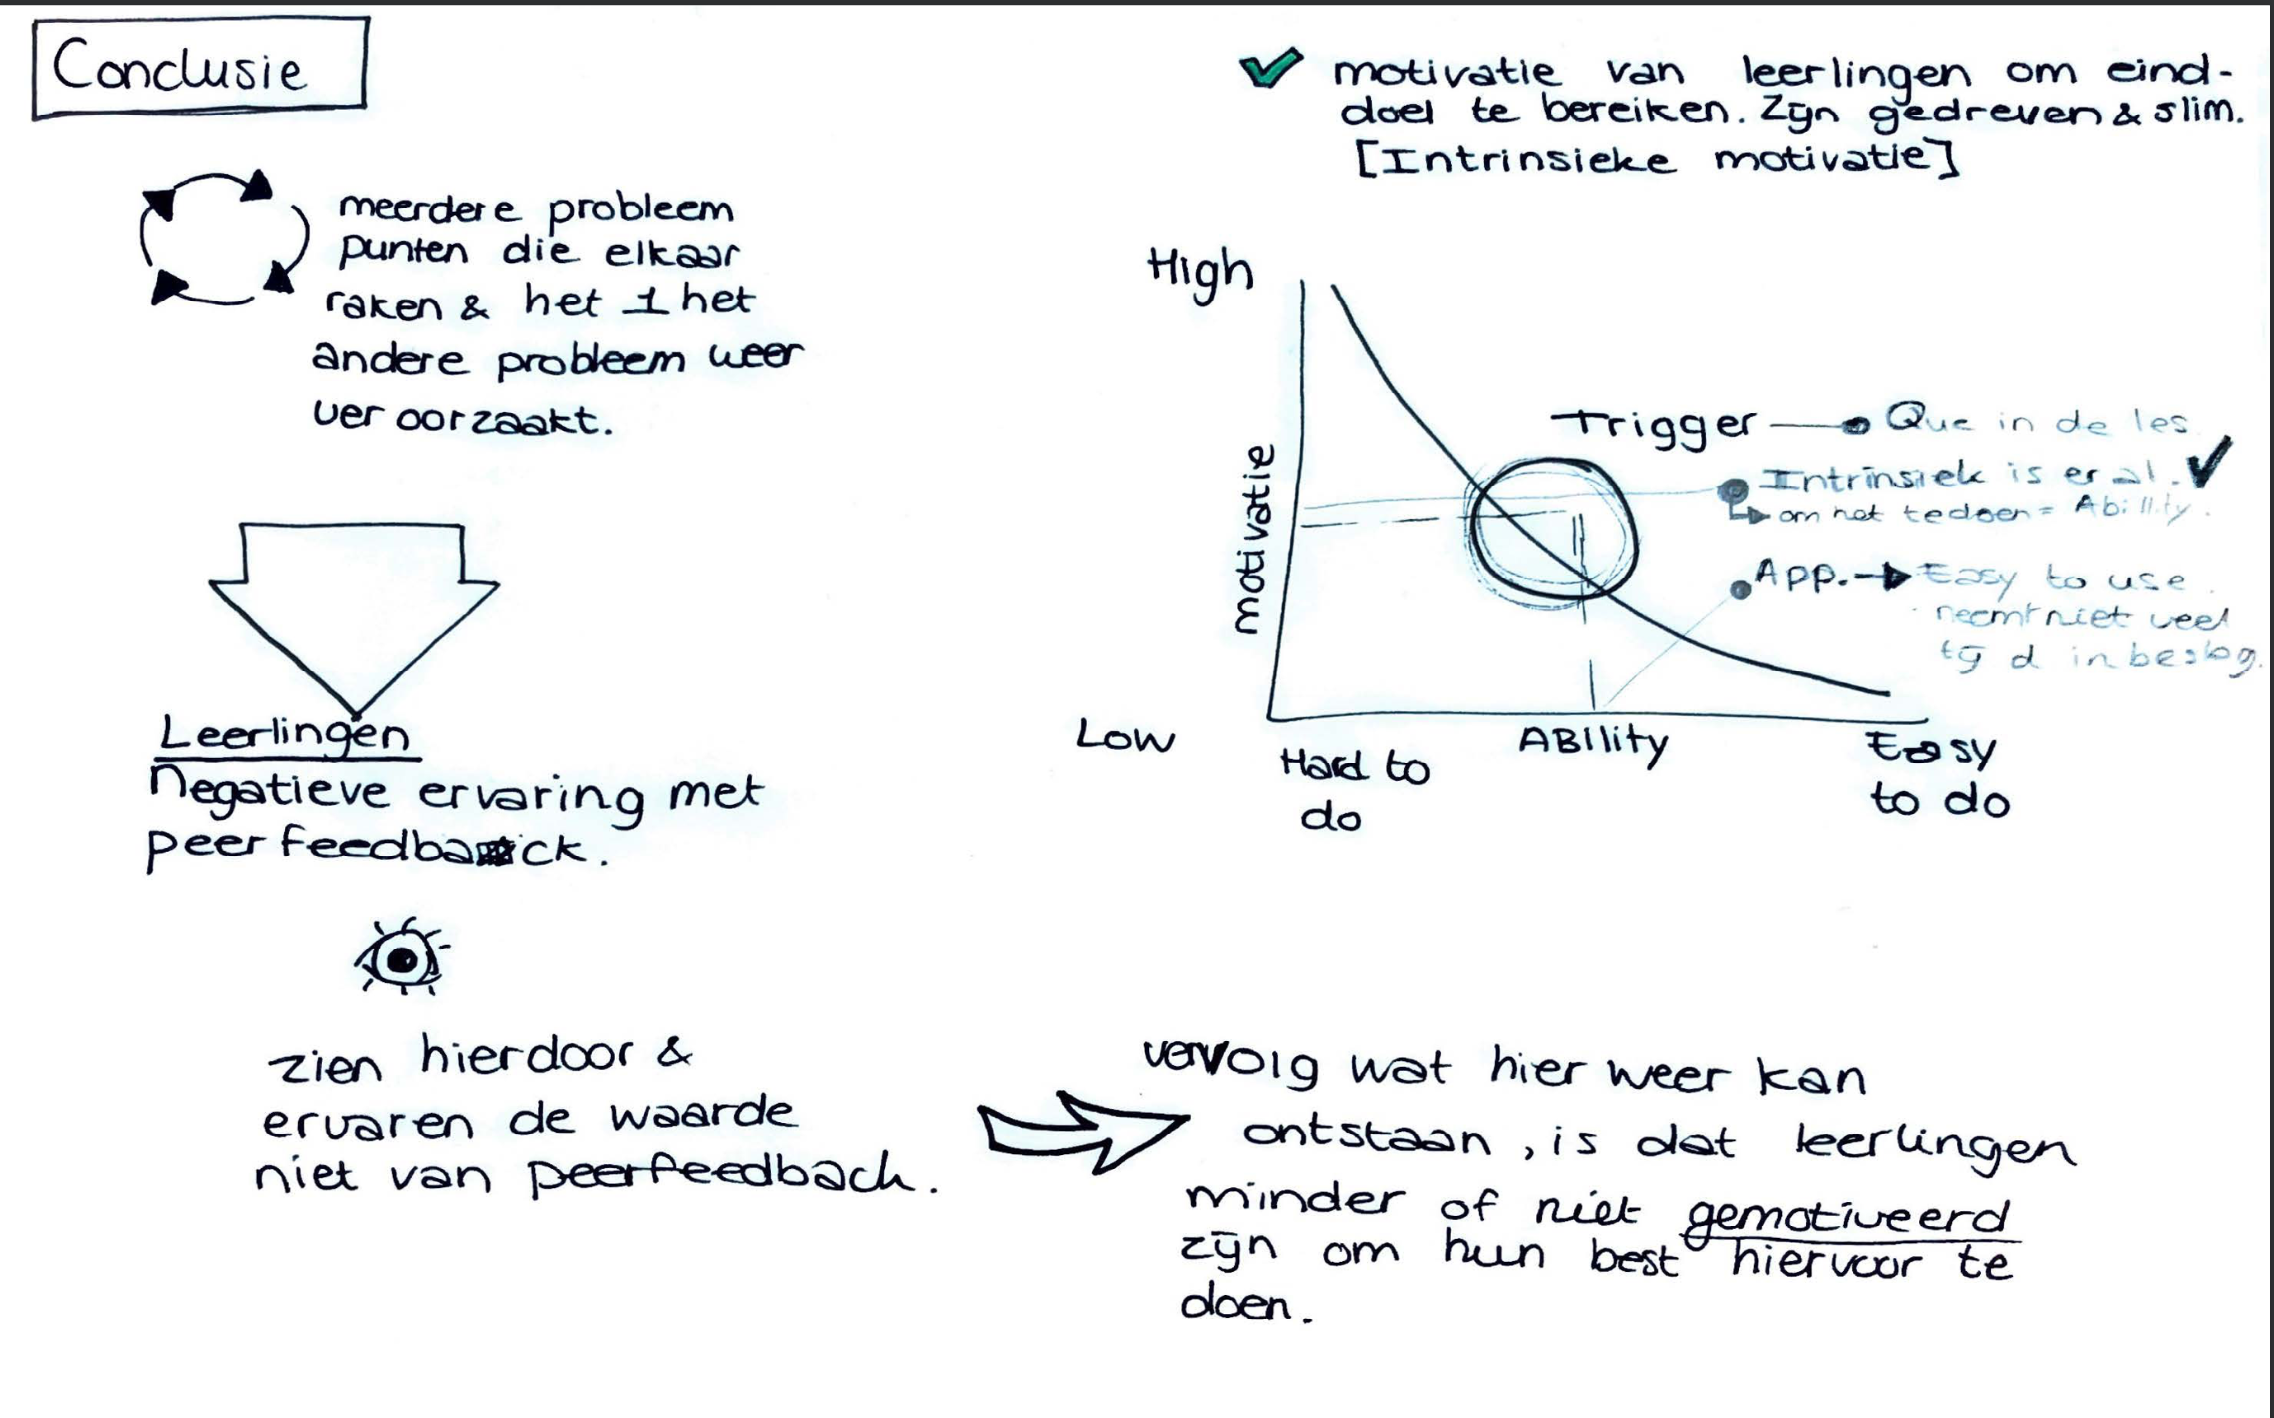 Conclusie
meerdere probleem
punten die elkaar
raken & het 1 het
andere probleem weer
veroorzaakt.
Leerlingen
Negatieve ervaring met
peerfeedback.
zien hierdoor &
ervaren de waarde
niet van peerfeedback.
motivatie van leerlingen om eind-
doel te bereiken. Zijn gedreven & slim.
[Intrinsieke motivatie]
High
motivatie
Low
Hard to
do
ABIlity
Easy
to do
Trigger
Que in de les
Intrinsiek is er al.
om het te doen = Abillity.
App.
Easy to use
neemt niet veel
tijd in beslag.
vervolg wat hier weer kan
ontstaan, is dat leerlingen
minder of niet gemotiveerd
zijn om hun best hiervoor te
doen.